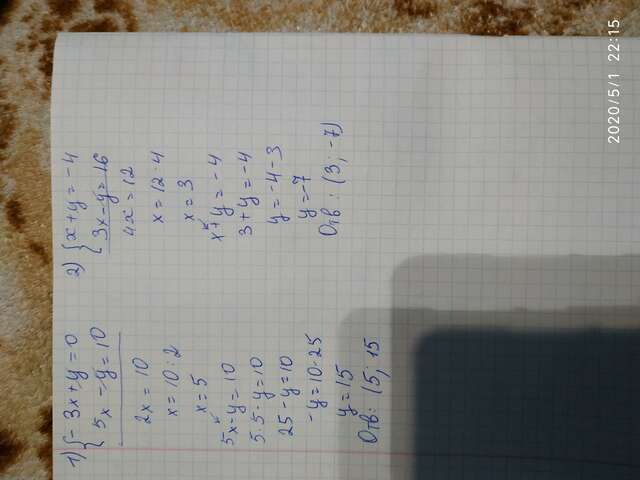 1) { - 3x + y = 0
5x - y = 10
2x = 10
x = 10 : 2
x = 5
5x - y = 10
5 · 5 - y = 10
25 - y = 10
- y = 10 - 25
y = 15
Отв: (5; 15
2) { x + y = - 4
3x - y = 16
4x = 12
x = 12 : 4
x = 3
x + y = - 4
3 + y = - 4
y = - 4 - 3
y = - 7
Отв : (3 ; - 7)
2020/5/1 22:15